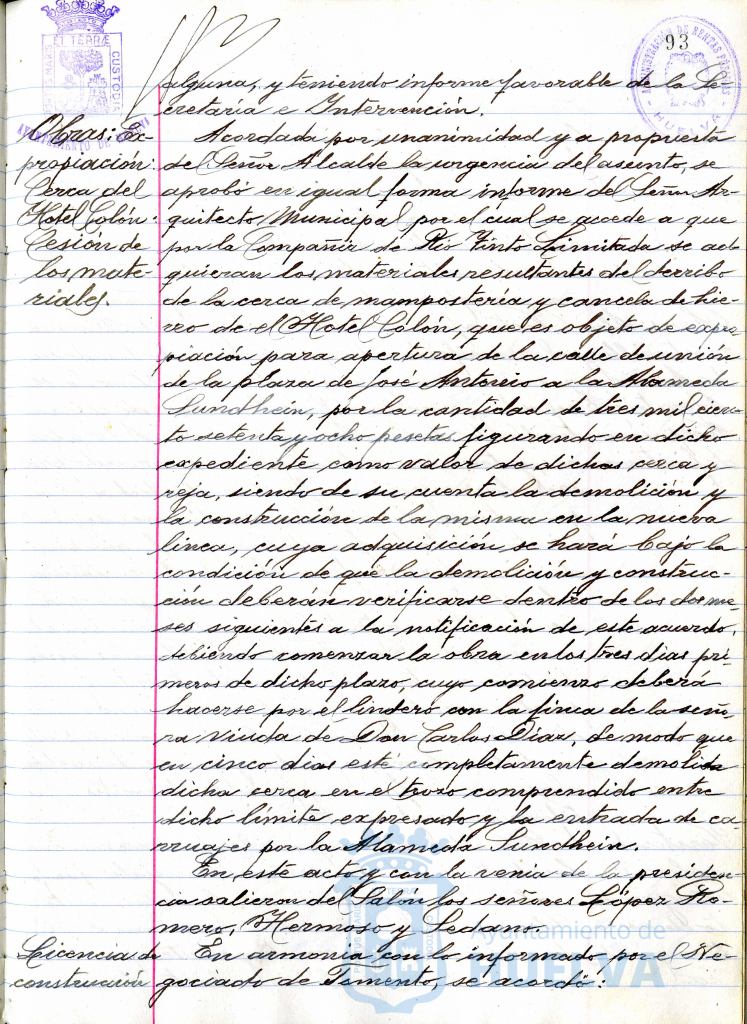 93
alguna, y teniendo informe favorable de la Se-
cretaría e Intervención.
Obras: Ex-
propiación:
Cerca del
Hotel Colón:
Cesión de
los mate-
riales.
Acordada por unanimidad y a propuesta
del Señor Alcalde la urgencia del asunto, se
aprobó en igual forma informe del Señor Ar-
quitecto Municipal por el cual se accede a que
por la Compañía de Rio Tinto Limitada se ad-
quieran los materiales resultantes del derribo
de la cerca de mampostería y cancela de hie-
rro de el Hotel Colón, que es objeto de expro-
piación para apertura de la calle de unión
de la plaza de José Antonio a la Alameda
Sundhein, por la cantidad de tres mil cien-
to setenta y ocho pesetas figurando en dicho
expediente, como valor de dichas cerca y
reja, siendo de su cuenta la demolición y
la construcción de la misma en la nueva
línea, cuya adquisición se hará bajo la
condición de que la demolición y construc-
ción deberán verificarse dentro de los dos me-
ses siguientes a la notificación de este acuerdo,
debiendo comenzar la obra en los tres dias pri-
meros de dicho plazo, cuyo comienzo deberá
hacerse por el lindero con la finca de la seño-
ra viuda de Don Carlos Díaz, de modo que
en cinco dias esté completamente demolida
dicha cerca en el trozo comprendido entre
dicho límite expresado y la entrada de ca-
rruajes por la Alameda Sundhein.
En este acto y con la venia de la presiden-
cia salieron del Salón los señores López Ro-
mero, Hermoso y Sedano.
Licencia de
construcción
En armonía con lo informado por el Ne-
gociado de Fomento, se acordó:
Ayuntamiento de
HUELVA